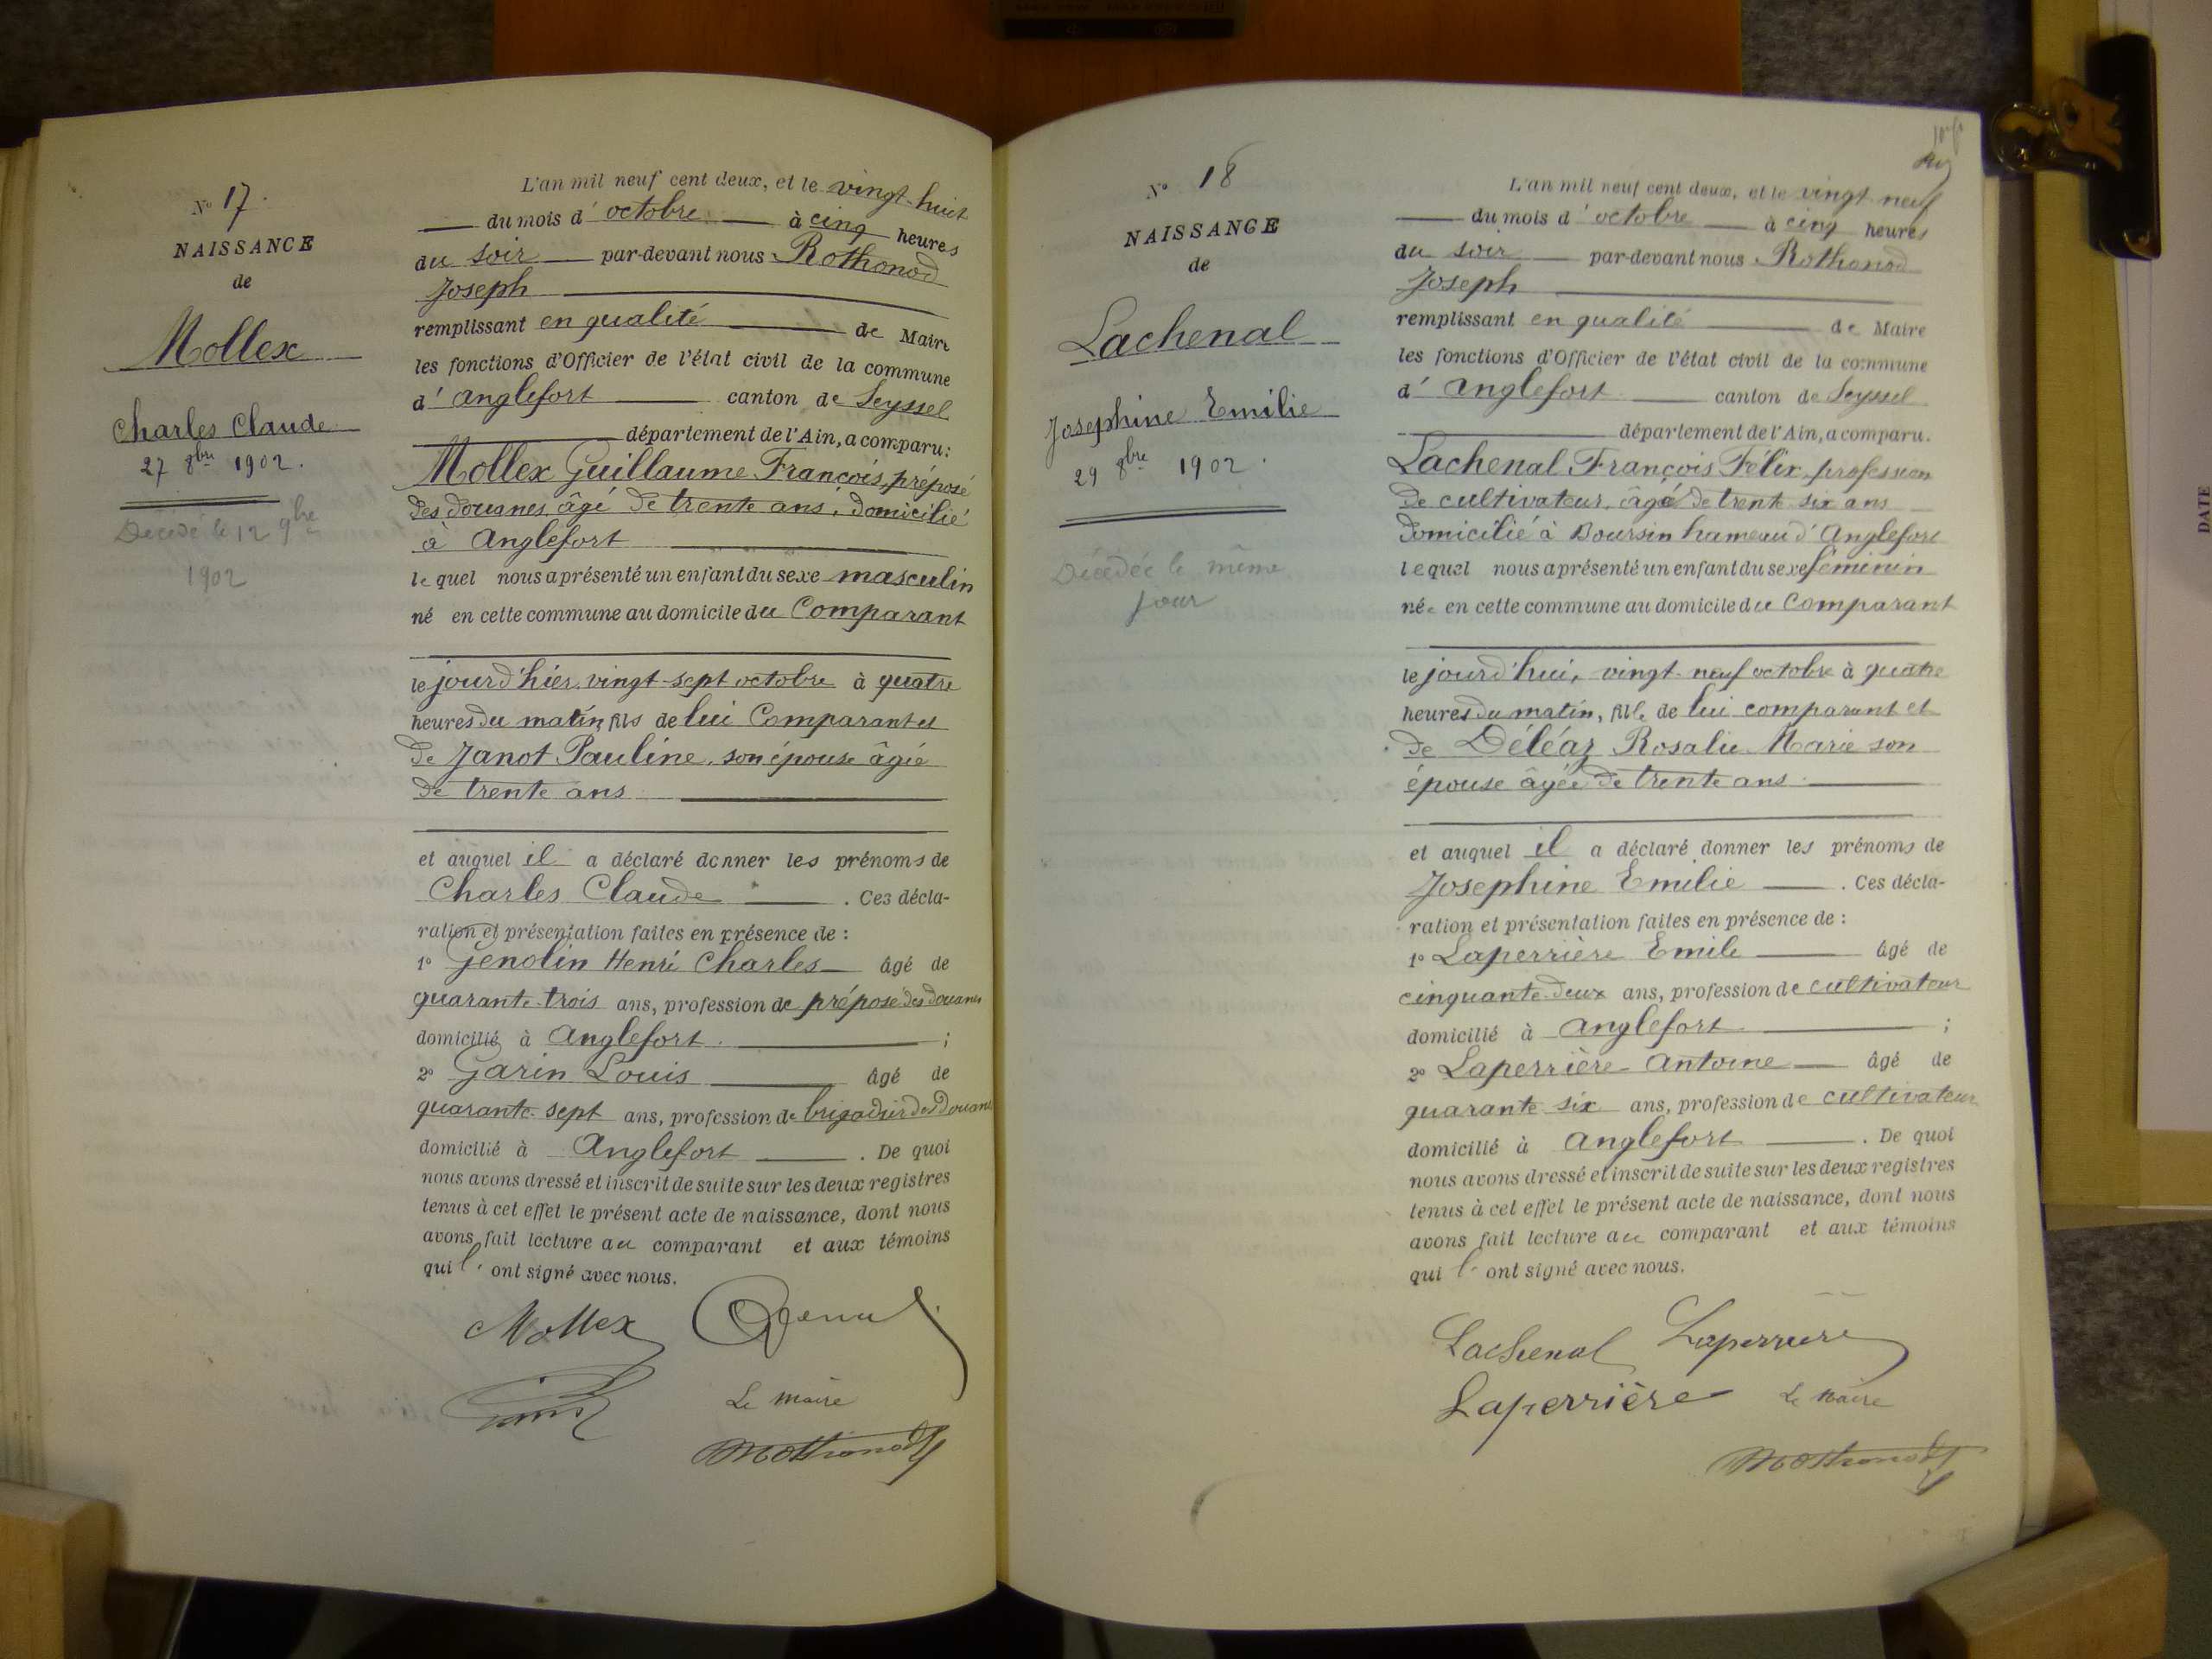 N° 17.
NAISSANCE
de
Mollex
Charles Claude
27 8bre 1902.
Décédé le 12 9bre
1902
L'an mil neuf cent deux, et le vingt-huit
du mois d'octobre à cinq heures
du soir par-devant nous Rothonod
Joseph
remplissant en qualité de Maire
les fonctions d'Officier de l'état civil de la commune
d'Anglefort canton de Seyssel
département de l'Ain, a comparu:
Mollex Guillaume François, préposé
des douanes, âgé de trente ans, domicilié
à Anglefort
lequel nous a présenté un enfant du sexe masculin
né en cette commune au domicile du Comparant
le jourd'hier vingt-sept octobre à quatre
heures du matin, fils de lui Comparant et
de Janot Pauline, son épouse âgée
de trente ans
et auquel il a déclaré donner les prénoms de
Charles Claude . Ces décla-
ration et présentation faites en présence de :
1° Genolin Henri Charles âgé de
quarante-trois ans, profession de préposé des douanes
domicilié à Anglefort ;
2° Garin Louis âgé de
quarante-sept ans, profession de brigadier des douanes
domicilié à Anglefort . De quoi
nous avons dressé et inscrit de suite sur les deux registres
tenus à cet effet le présent acte de naissance, dont nous
avons fait lecture au comparant et aux témoins
qui l' ont signé avec nous.
Mollex
Le Maire
Rothonod
N° 18
NAISSANCE
de
Lachenal
Josephine Emilie
29 8bre 1902.
Décédée le même
jour
L'an mil neuf cent deux, et le vingt neuf
du mois d'octobre à cinq heures
du soir par-devant nous Rothonod
Joseph
remplissant en qualité de Maire
les fonctions d'Officier de l'état civil de la commune
d'Anglefort canton de Seyssel
département de l'Ain, a comparu.
Lachenal François Félix, profession
de cultivateur, âgé de trente six ans
domicilié à Boursin hameau d'Anglefort
lequel nous a présenté un enfant du sexe féminin
née en cette commune au domicile du Comparant
le jourd'hui, vingt-neuf octobre à quatre
heures du matin, fille de lui comparant et
de Déléaz Rosalie Marie son
épouse âgée de trente ans
et auquel il a déclaré donner les prénoms de
Josephine Emilie . Ces décla-
ration et présentation faites en présence de :
1° Laperrière Emile âgé de
cinquante-deux ans, profession de cultivateur
domicilié à Anglefort ;
2° Laperrière Antoine âgé de
quarante six ans, profession de cultivateur
domicilié à Anglefort . De quoi
nous avons dressé et inscrit de suite sur les deux registres
tenus à cet effet le présent acte de naissance, dont nous
avons fait lecture au comparant et aux témoins
qui l' ont signé avec nous.
Lachenal Laperrière
Laperrière Le Maire
Rothonod
DATE